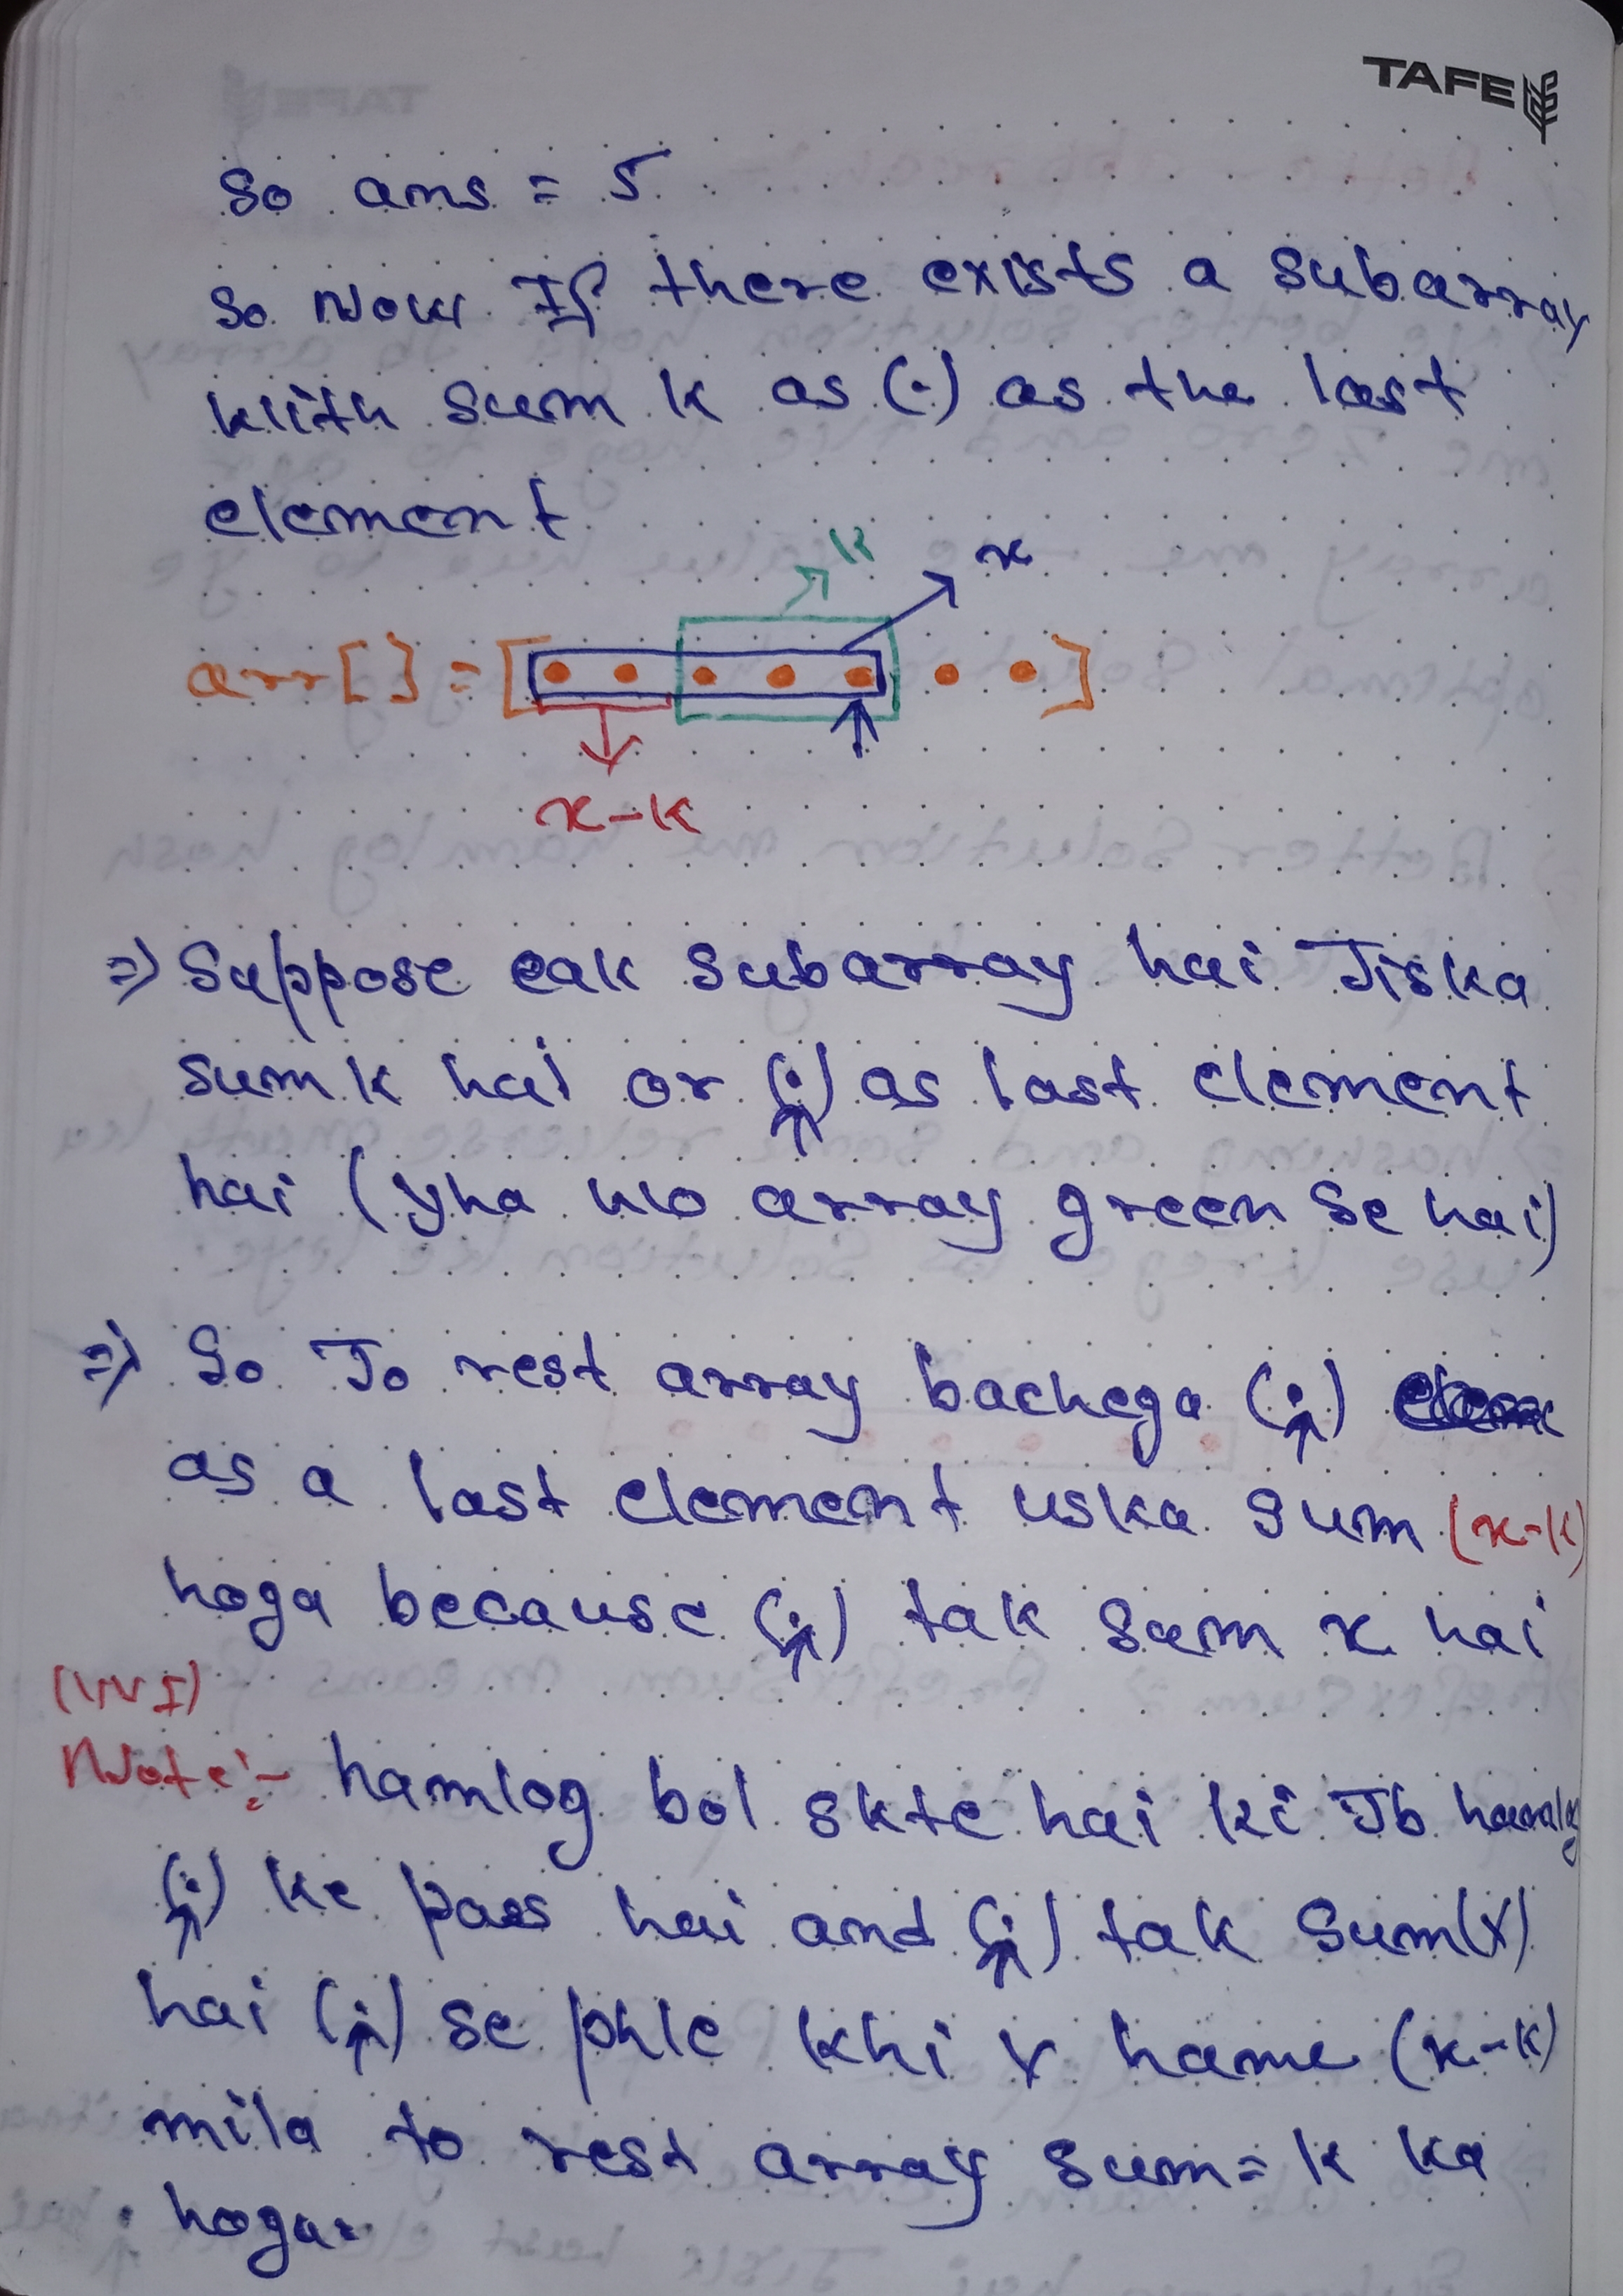 TAFE
So ans = 5
So Now If there exists a subarray
with sum k as (.) as the last
element
k x
arr[] = [ ]
x-k
=> Suppose eak subarray hai Jiska
sum k hai or (.) as last element
hai (yha wo array green se hai)
=> So Jo rest array bachega (.)
as a last element uska sum (x-k)
hoga because (.) tak sum x hai
(VVI)
Note:- hamlog bol skte hai ki Jb hamlog
(.) ke pass hai and (.) tak sum(x)
hai (.) se phle khi hame (x-k)
mila to rest array sum = k ka
hoga.